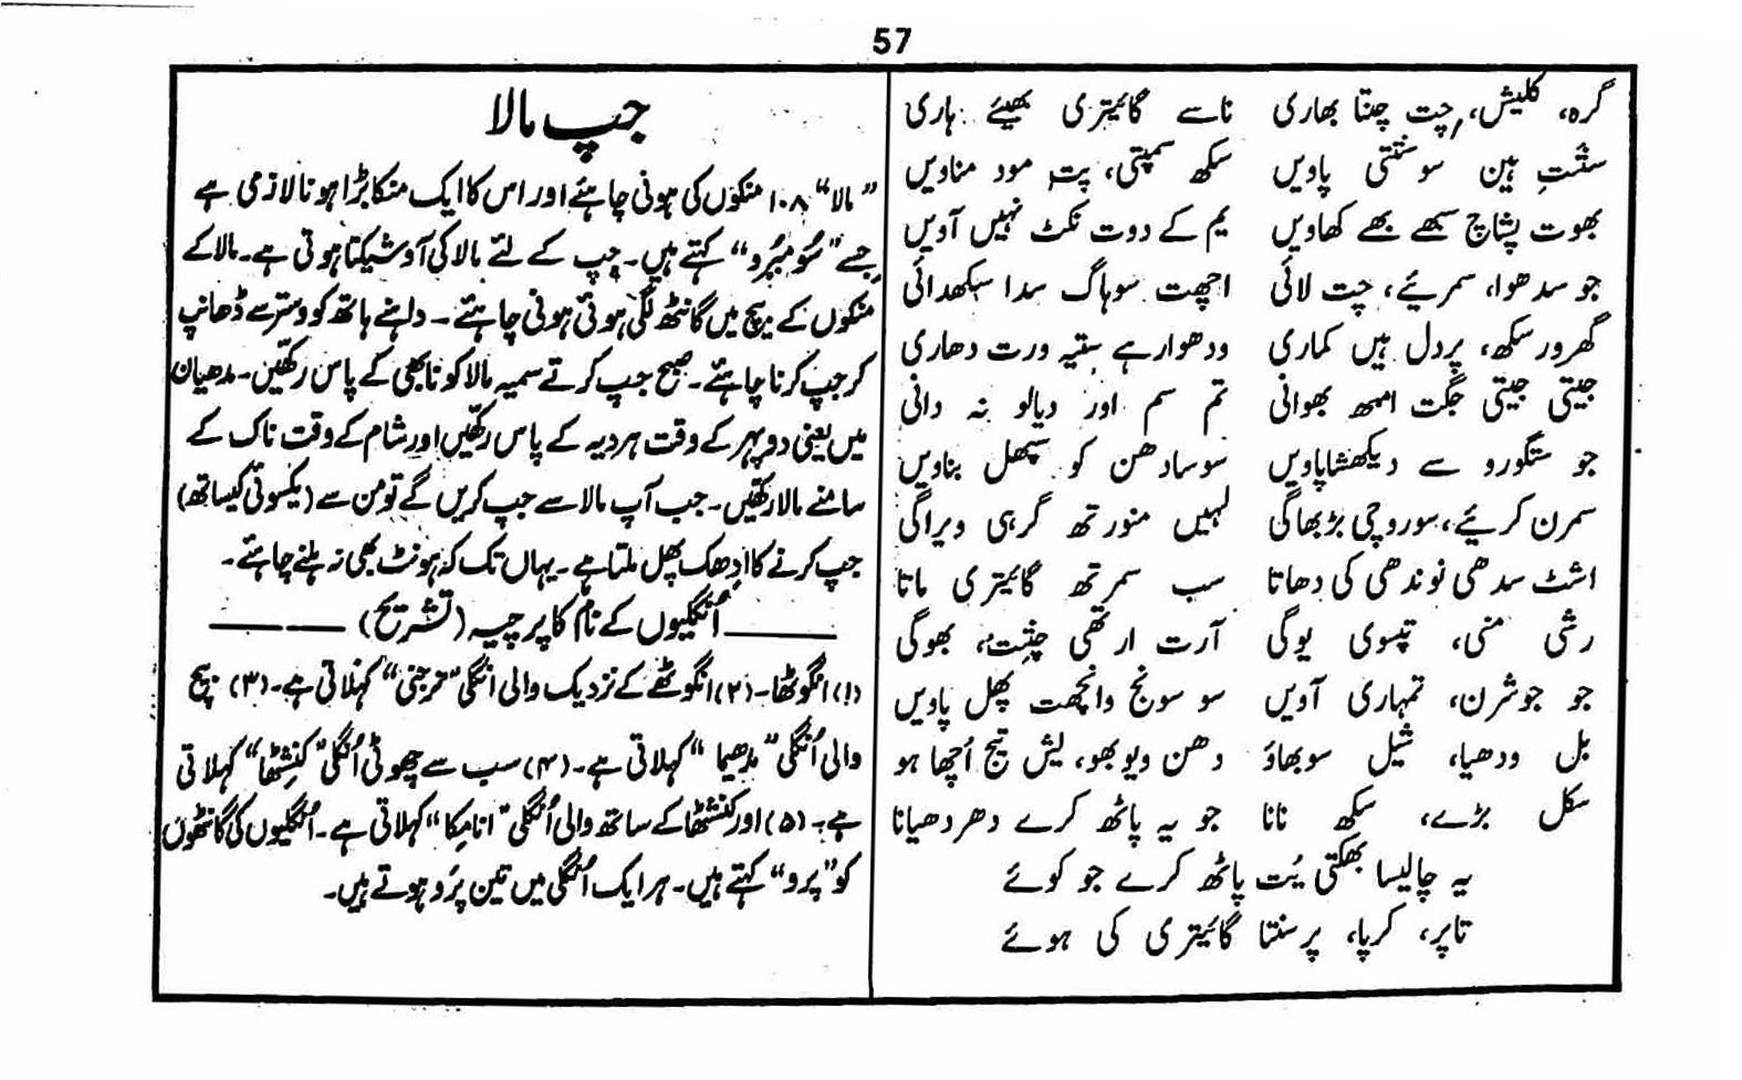 57
گرہ، کلیش، چت چنتا بھاری ناسے گائیتری بھیئے ہاری
سنتت ہین سوسنتتی پاویں سکھ سمپتی، پت مود مناویں
بھوت پشاچ سبھے بھے کھاویں یم کے دوت نکٹ نہیں آویں
جو سدھوا، سمرئیے، چت لائی اچھت سوہاگ سدا سکھدائی
گھرور سکھ، پردل ہیں کماری ودھوا رہے ستیہ ورت دھاری
جیتی جیتی جگت امبھ بھوانی تم سم اور دیالو نہ دانی
جو ستگورو سے دیکھشاپاویں سوسادھن کو سپھل بناویں
سمرن کرئیے، سوروچی بڑبھاگی لہیں منورتھ گرہی ویراگی
اشٹ سدھی نوندھی کی دھاتا سب سمرتھ گائیتری ماتا
رشی منی، تپسوی یوگی آرت ارتھی چنتت، بھوگی
جو جو شرن، تمہاری آویں سو سونج وانچھت پھل پاویں
بل ودھیا، شیل سوبھاؤ دھن ویوبھو، یش تیج اُچھا ہو
سکل بڑے، سکھ نانا جو یہ پاٹھ کرے دھر دھیانا
یہ چالیسا بھکتی یُت پاٹھ کرے جو کوئے
تاپر، کرپا، پرسنتا گائیتری کی ہوئے
جپ مالا
”مالا“ ۱۰۸ منکوں کی ہونی چاہئے اور اس کا ایک منکا بڑا ہونا لازمی ہے
جسے ”سُومیرُو“ کہتے ہیں۔ جپ کے لئے مالا کی آوشیکتا ہوتی ہے۔ مالا کے
منکوں کے بیچ میں گانٹھ لگی ہوئی ہونی چاہئے۔ داہنے ہاتھ کو وستر سے ڈھانپ
کر جپ کرنا چاہئے۔ صبح جپ کرتے سمیہ مالا کو نابھی کے پاس رکھیں۔ مدھیان
میں یعنی دوپہر کے وقت ہردیہ کے پاس رکھیں اور شام کے وقت ناک کے
سامنے مالا رکھیں۔ جب آپ مالا سے جپ کریں گے تو من سے (یکسوئی کیساتھ)
جپ کرنے کا ادھک پھل ملتا ہے۔ یہاں تک کہ ہونٹ بھی نہ ہلنے چاہئے۔
اُنگلیوں کے نام کا پرچیہ (تشریح)
(۱) انگوٹھا۔ (۲) انگوٹھے کے نزدیک والی انگلی ”ترجنی“ کہلاتی ہے۔ (۳) بیچ
والی اُنگلی ”مدھیما“ کہلاتی ہے۔ (۴) سب سے چھوٹی اُنگلی ”کنِشٹھا“ کہلاتی
ہے۔ (۵) اور کنشٹھا کے ساتھ والی اُنگلی ”انامِکا“ کہلاتی ہے۔ اُنگلیوں کی گانٹھوں
کو ”پرو“ کہتے ہیں۔ ہر ایک اُنگلی میں تین پرَو ہوتے ہیں۔